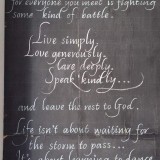 for everyone you meet is fighting
some kind of battle.
Live simply.
Love generously.
Care deeply.
Speak kindly...
and leave the rest to God.
Life isn't about waiting for
the storm to pass...
It's about learning to dance